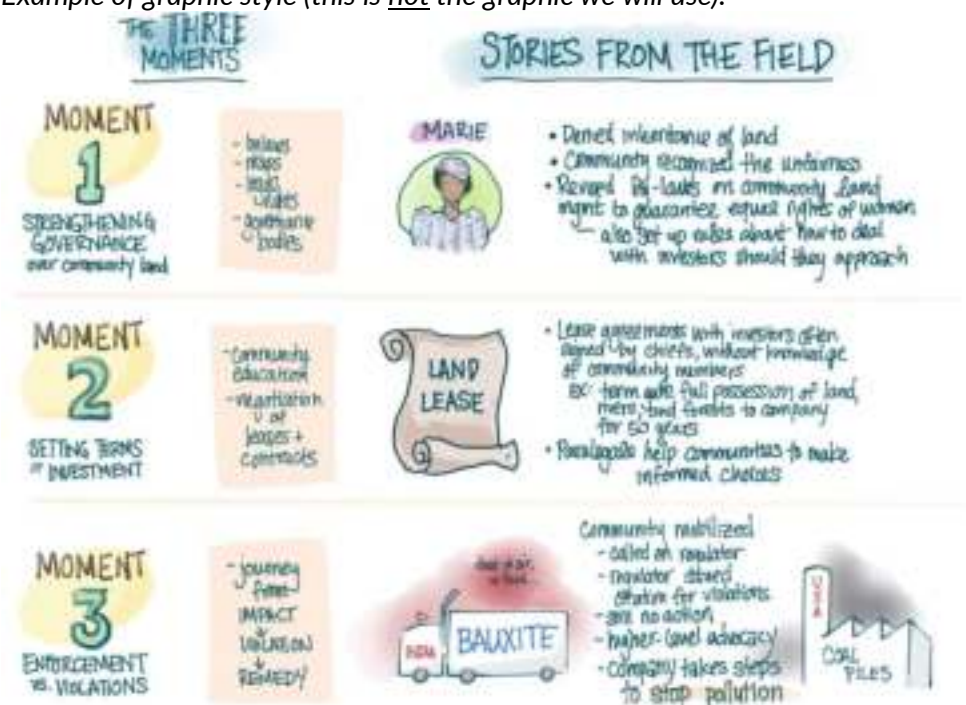 Example of graphic style (this is not the graphic we will use):
THE THREE
MOMENTS
STORIES FROM THE FIELD
MOMENT
1
STRENGTHENING
GOVERNANCE
over community land
- bylaws
- maps
- land
- governance
bodies
MARIE
• Denied inheritance of land
• Community recognized the unfairness
• Revised by-laws on community land
mgmt to guarantee equal rights of women
- also set up rules about how to deal
with investors should they approach
MOMENT
2
SETTING TERMS
OF INVESTMENT
- Community
education
- negotiation
of
leases +
contracts
LAND
LEASE
• Lease agreements with investors often
signed by chiefs, without knowledge
of community members
EX: term full possession of land,
and forests to company
for 50 years
• Paralegals help communities to make
informed choices
MOMENT
3
ENFORCEMENT
vs. VIOLATIONS
- journey
from
IMPACT
VIOLATION
REMEDY
INDIA
BAUXITE
Community mobilized
- called on regulator
- regulator issued
citation for violations
- no action
- higher-level advocacy
- company takes steps
to stop pollution
COAL
PILES